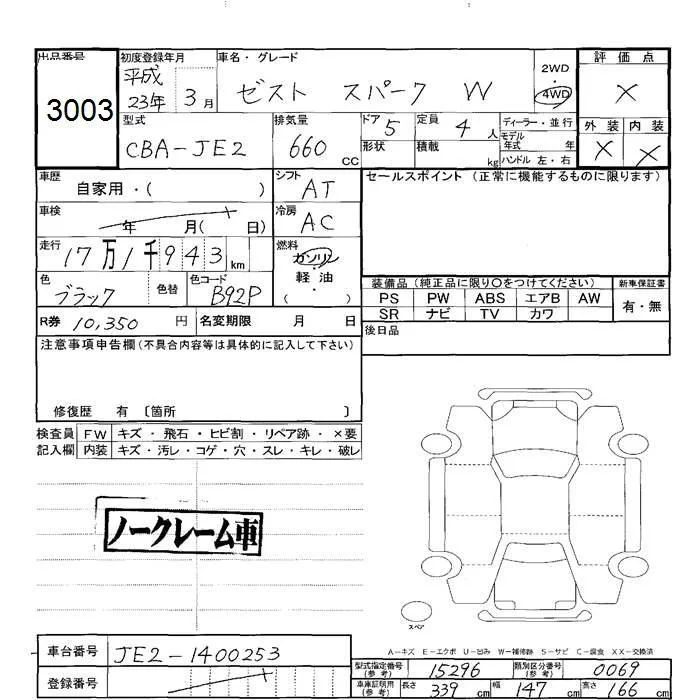 出品番号 3003
初度登録年月 平成23年 3月
車名・グレード ゼスト スパーク W
2WD
4WD
評価点 X
型式 CBA-JE2
排気量 660 cc
ドア 5
形状
定員 4 人
積載 kg
ディーラー・並行
モデル年式 年
ハンドル 左・右
外装 X 内装 X
車歴 自家用・( )
シフト AT
車検 年 月( 日)
冷房 AC
走行 17万1千943 km
燃料 ガソリン
軽油
( ・ )
色 ブラック 色替 色コード B92P
R券 10,350 円 名変期限 月 日
セールスポイント (正常に機能するものに限ります)
装備品 (純正品に限り○をつけてください) 新車保証書
PS PW ABS エアB AW 有・無
SR ナビ TV カワ
後日品
注意事項申告欄(不具合内容等は具体的に記入して下さい)
修復歴 有 〔箇所 〕
検査員記入欄
FW キズ・飛石・ヒビ割・リペア跡・×要
内装 キズ・汚レ・コゲ・穴・スレ・キレ・破レ
ノークレーム車
スペア
A-キズ E-エクボ U-凹み W-補修跡 S-サビ C-腐食 XX-交換済
車台番号 JE2-1400253
登録番号
型式指定番号(参考) 15296 類別区分番号(参考) 0069
車庫証明用(参考) 長さ 339 cm 幅 147 cm 高さ 166 cm